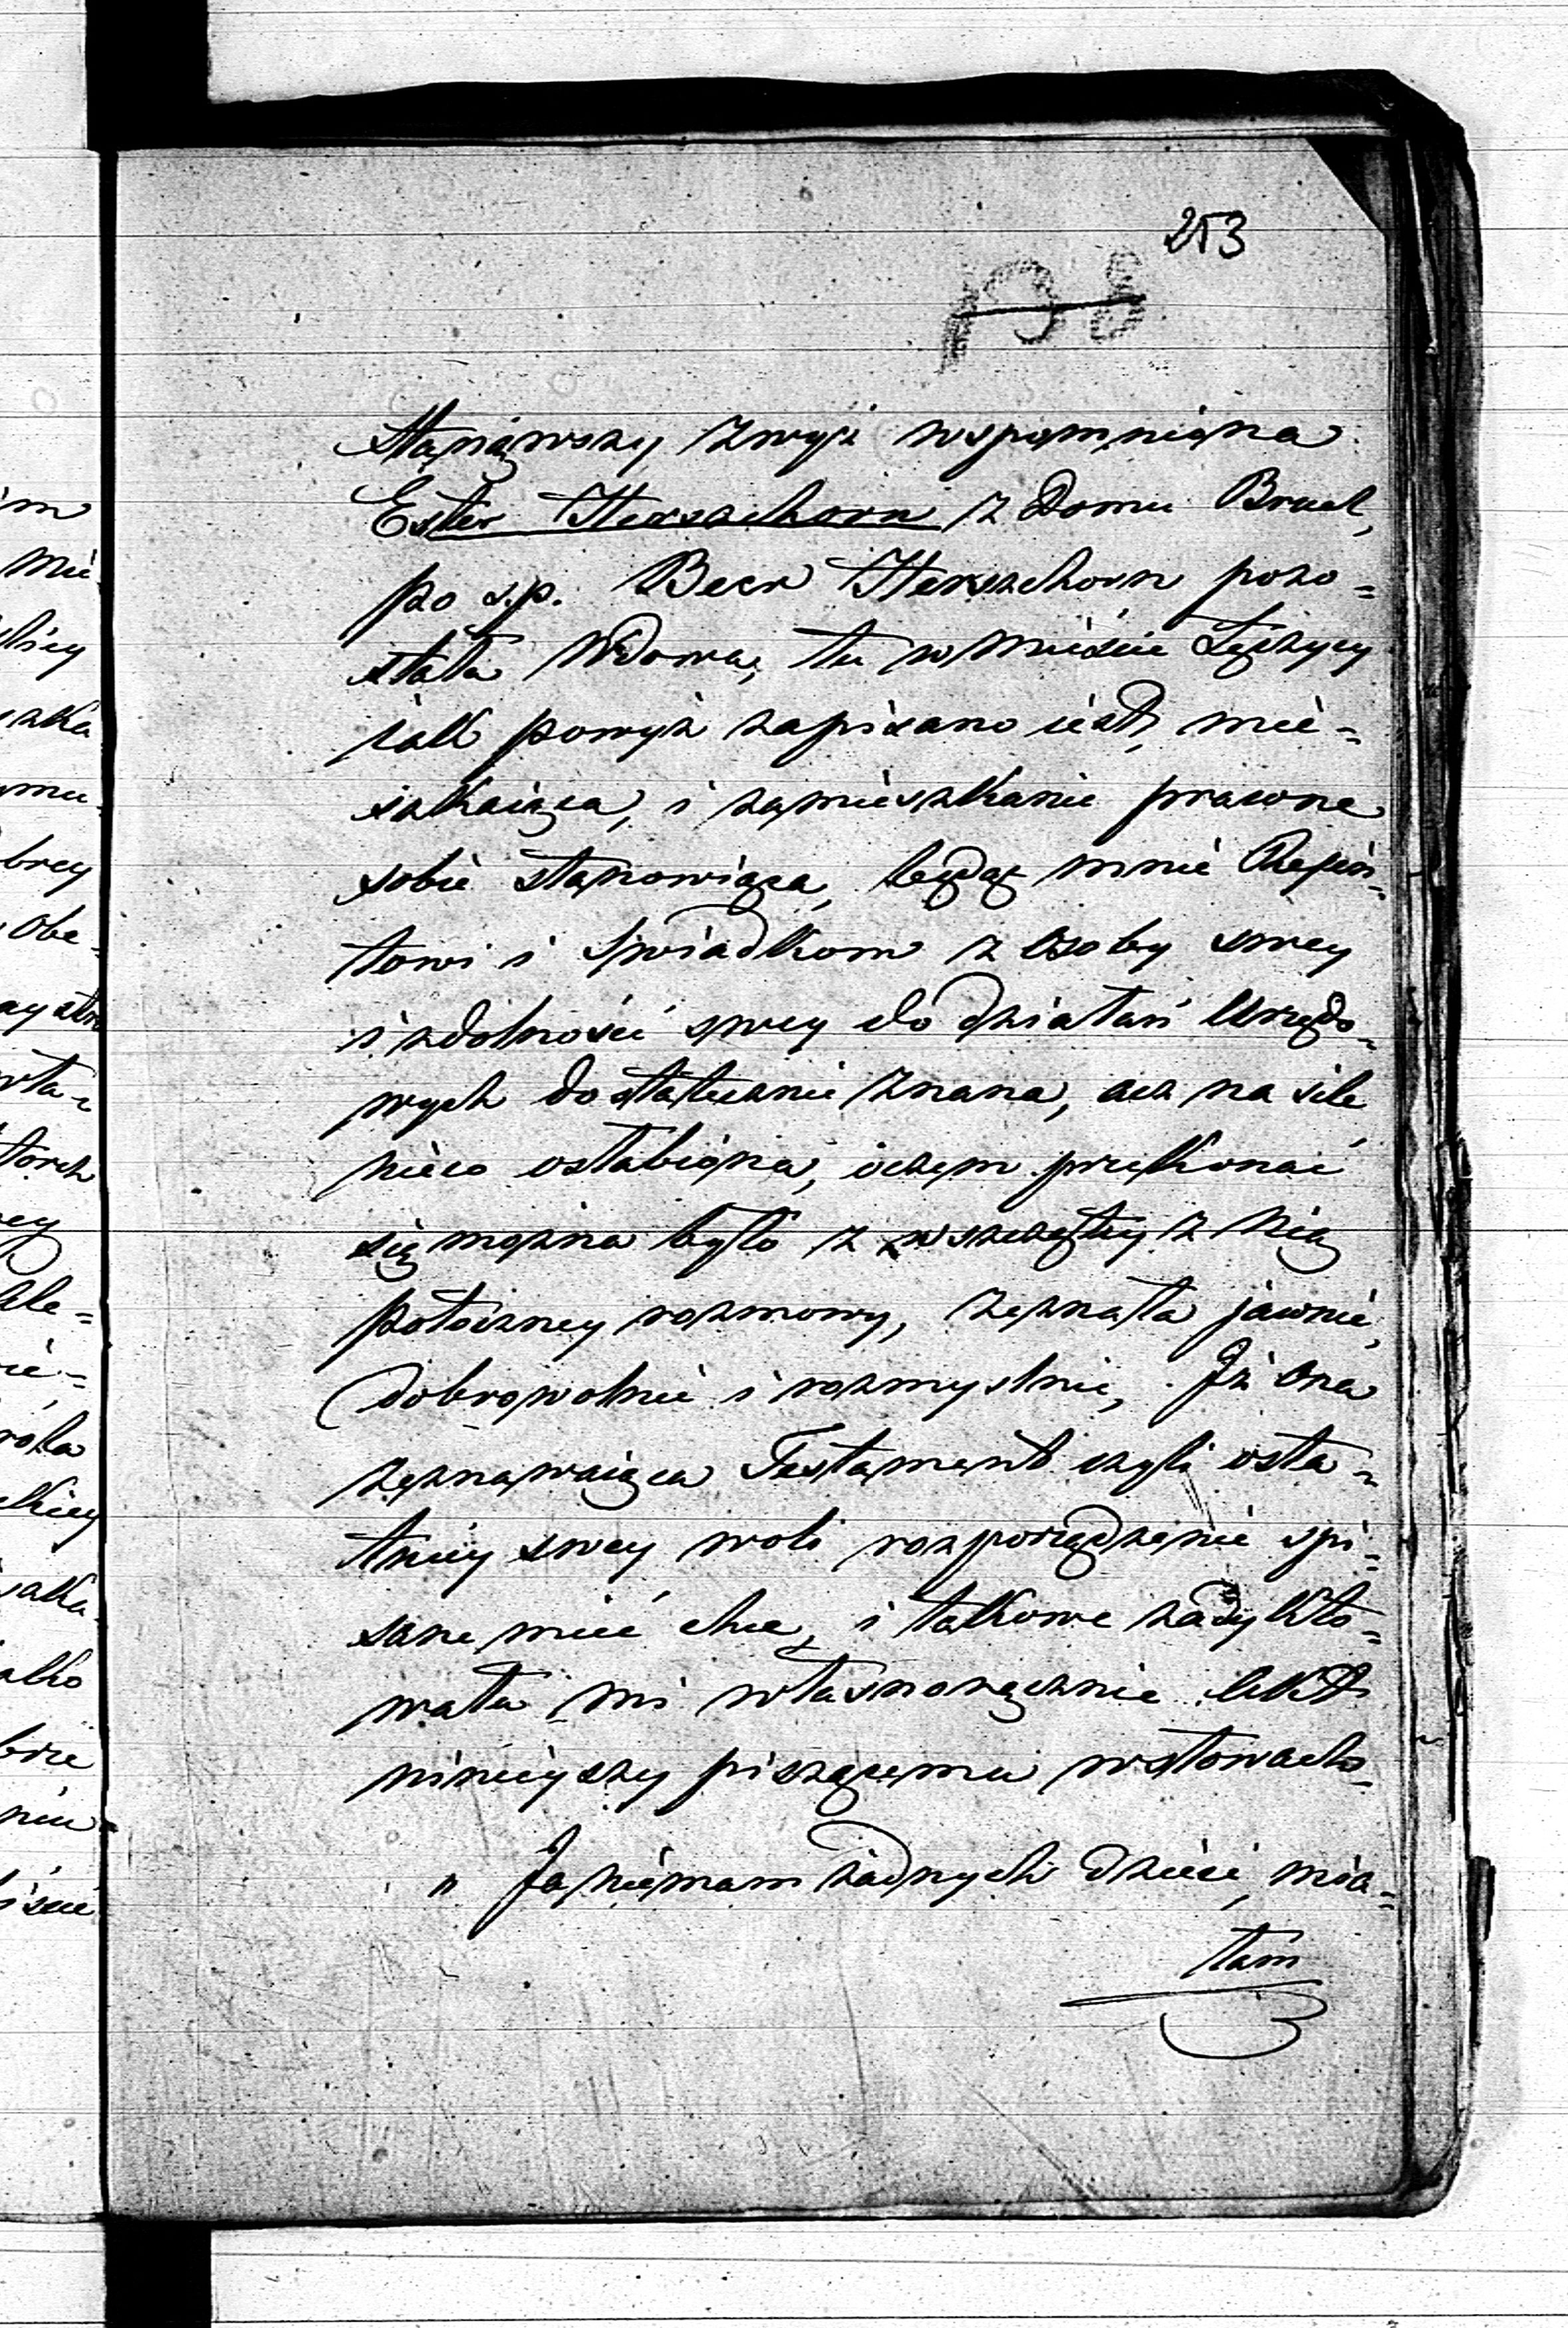 253
198
Stanąwszy zwyż wspomniona
Ester Herszchorn z Domu Bruel,
po ś.p. Beer Herszchorn pozo=
stała Wdowa, tu w Mieście Łęczycy
iak powyż zapisano iest, mie=
szkaiąca, i zamieszkanie prawne
sobie stanowiąca, będąc mnie Reien=
towi i Swiadkom z Osoby swey
i zdolności swey do działań Urzędo=
wych dostatecznie znana, acz na sile
nieco osłabiona, oczem przekonać
się można było z wszczętey z Nią
potoczney rozmowy, zeznała jawnie,
dobrowolnie i rozmyslnie, Iż Ona
zeznawaiąca Testament czyli osta=
tniey swey woli rozporządzenie spi=
sane mieć chce, i takowe zadykto=
wała mi własnoręcznie Akt
ninieyszy piszącemu w słowach.
" Ja niemam żadnych dzieci, mia=
łam
im
mie
szka
brey
Obe=
wła=
torch
ey
ie=
szka
brze
niu